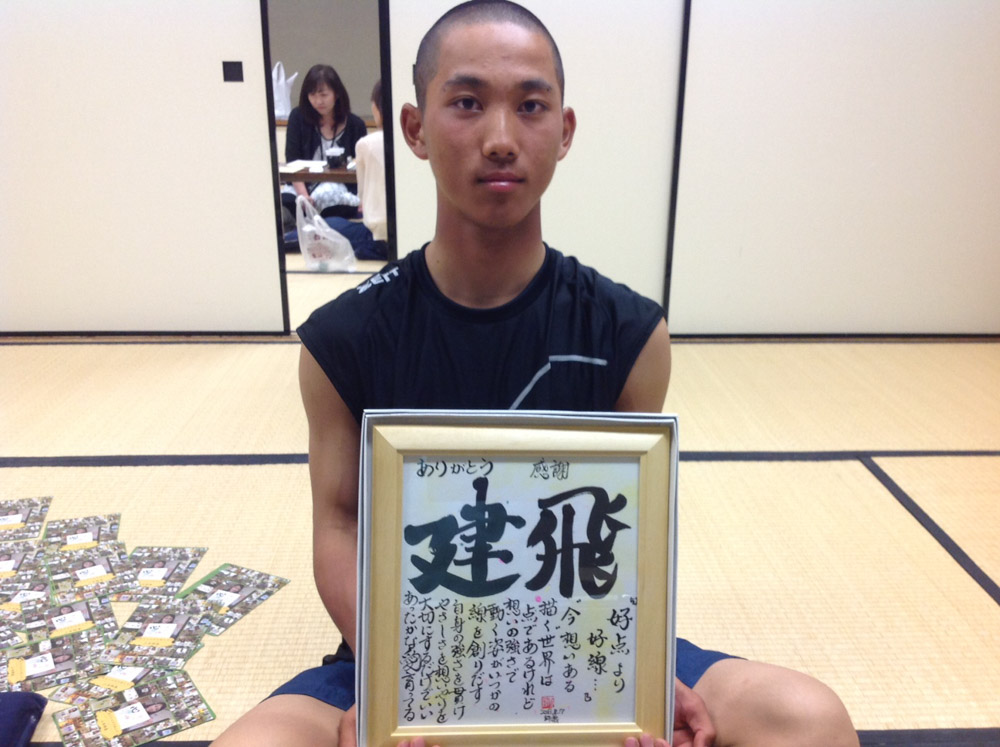 ありがとう 感謝
飛
建
"好点より
好線…"
"今"想いある
描く世界は
点であるけれど
想いの強さで
動く姿がいつかの
線を創りだす
自身の強さを貫け
やさしさと想いやりを
大切にするだけでいい
あったかな愛 育ってる